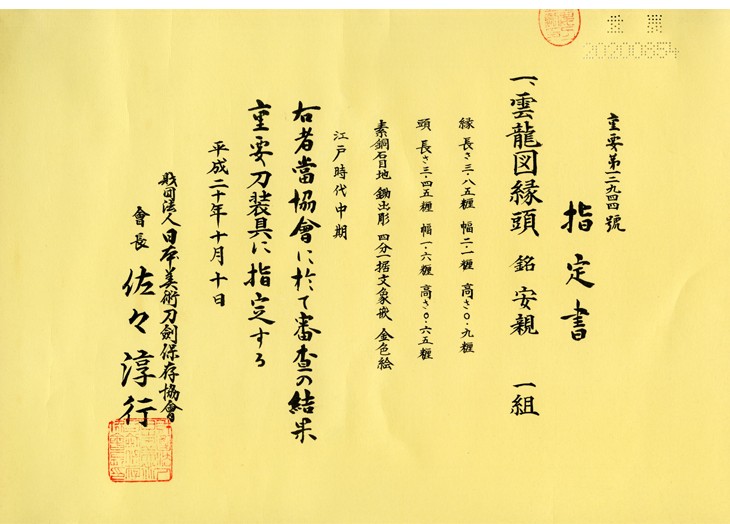 20200654
重要第一二九四四號
指定書
一、雲龍図縁頭 銘 安親 一組
縁 長さ三・八五糎 幅二・一糎 高さ〇・九糎
頭 長さ三・四五糎 幅一・六糎 高さ〇・六五糎
素銅石目地 鋤出彫 四分一括文象嵌 金色絵
江戸時代中期
右者當協會に於て審査の結果
重要刀装具に指定する
平成二十年十月十日
財団法人日本美術刀劍保存協會
會長 佐々淳行